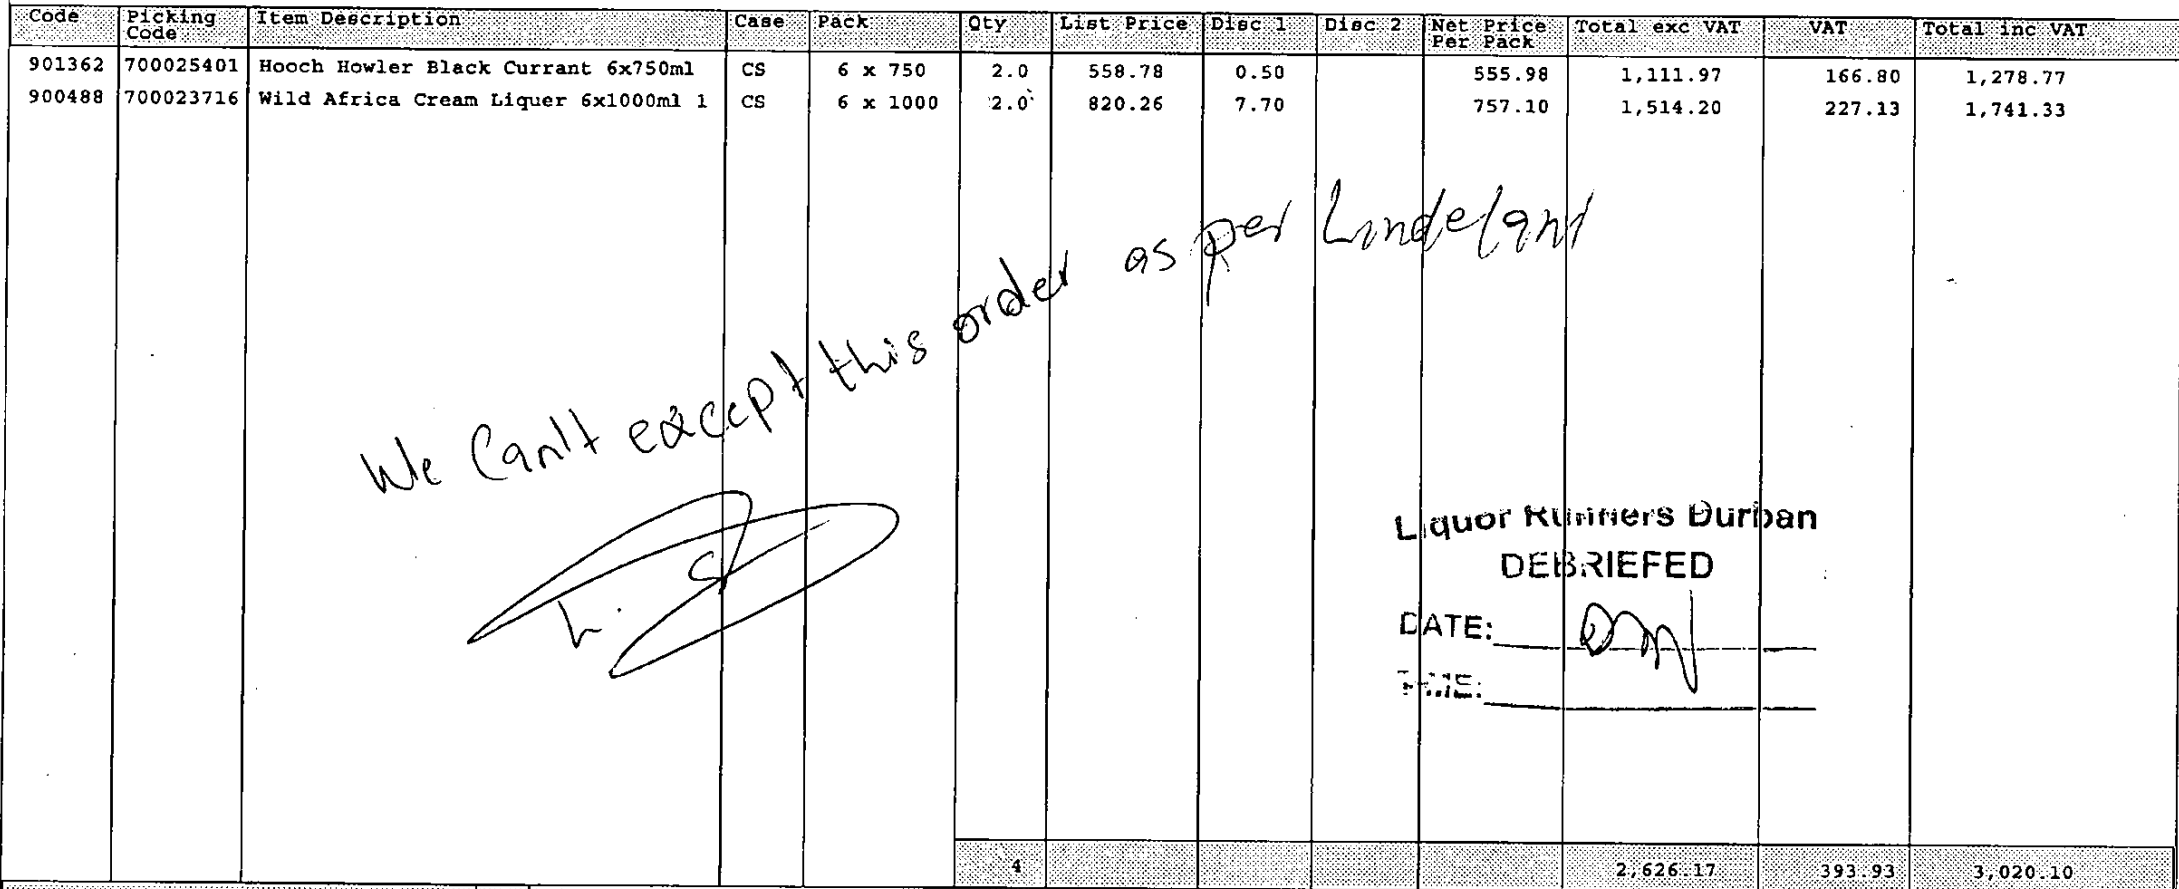 Code Picking Code Item Description Case Pack Qty List Price Disc 1 Disc 2 Net Price Per Pack Total exc VAT VAT Total inc VAT
901362 700025401 Hooch Howler Black Currant 6x750ml CS 6 x 750 2.0 558.78 0.50 555.98 1,111.97 166.80 1,278.77
900488 700023716 Wild Africa Cream Liquer 6x1000ml 1 CS 6 x 1000 2.0 820.26 7.70 757.10 1,514.20 227.13 1,741.33
We Can't except this order as per
Liquor Runners Durban
DEBRIEFED
DATE:
TIME:
4 2,626.17 393.93 3,020.10